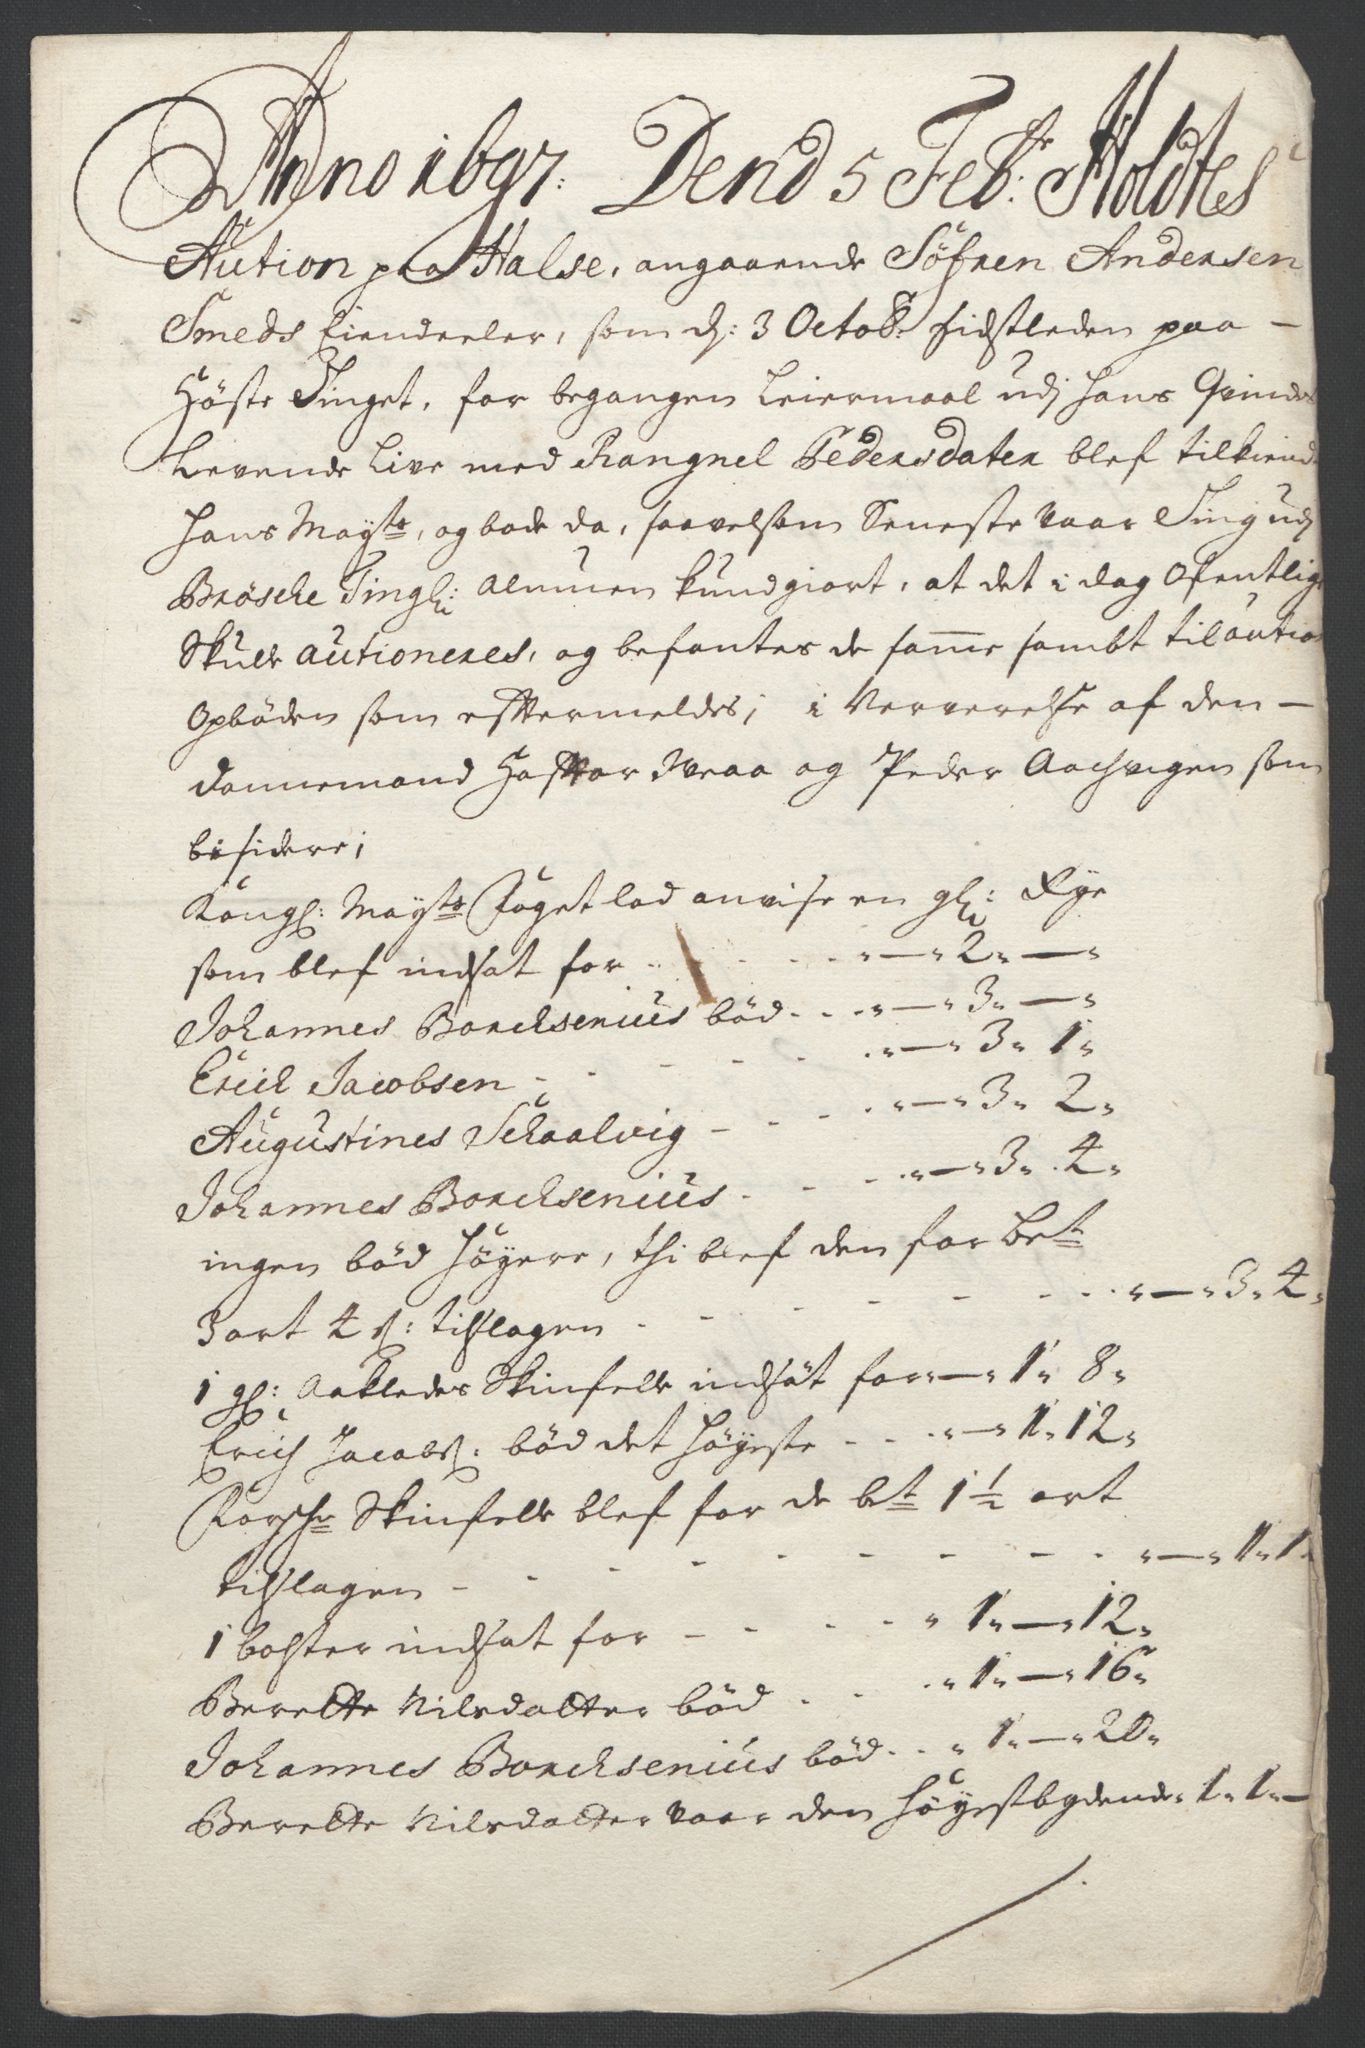 Anno 1697: Dend 5 Febr: Holdtes
Aution paa Halse, angaaende Söfren Andersen
Smeds Eiendeeler, som d: 3 Octob: sidstleden paa -
Höste Tinget, for begangen Leiermaal udj hans Qvindes
Levende Live med Rangnel Pedersdater blef tilkiende
hans Mayts, og bode da, saavelsom Seneste Vaar Ting udj
Brösche Tingl: Almuen kundgiort, at det i dag Ofentlige
Skulle autioneres, og befantes de samme sambt til aution
Opböden som efftermeldes; i Ververelse af den -
dannemand Haffvor og Peder Aachvigen som
besidere;
Kongl: Mayts Foget lod anvise en gl: Rye
som blef indsat for . . . . . „ — „ 2 „ — „
Johannes Borchsenius böd . . . „ — „ 3 „ — „
Erich Jacobsen - - - - - . „ — „ 3 „ 1 „
Augustines Schaalvig - - - . „ — „ 3 „ 2 „
Johannes Borchsenius . - - . „ — „ 3 „ 4 „
ingen böd höyere, thi blef den for bete
3 ort 4 s: tilslagen . - - - - - . . „ — „ 3 „ 4 „
1 gl: Aakledes Skinfelle indsat for „ — „ 1 „ 8 „
Erich Jacobs: böd det höyeste - . . „ — „ 1 „ 12 „
Forschr Skinfelle blef for de bete 1 1/2 ort
tilslagen - - - - - - - - . „ — „ 1 „ 1
1 bolster indsat for - - . . - „ 1 „ — „ 12 „
Berette Nilsdatter böd . - . „ 1 „ — „ 16 „
Johannes Borchsenius böd . . „ 1 „ — „ 20 „
Berette Nilsdatter vaar den höyestbydende „ 1 „ 1 „ —